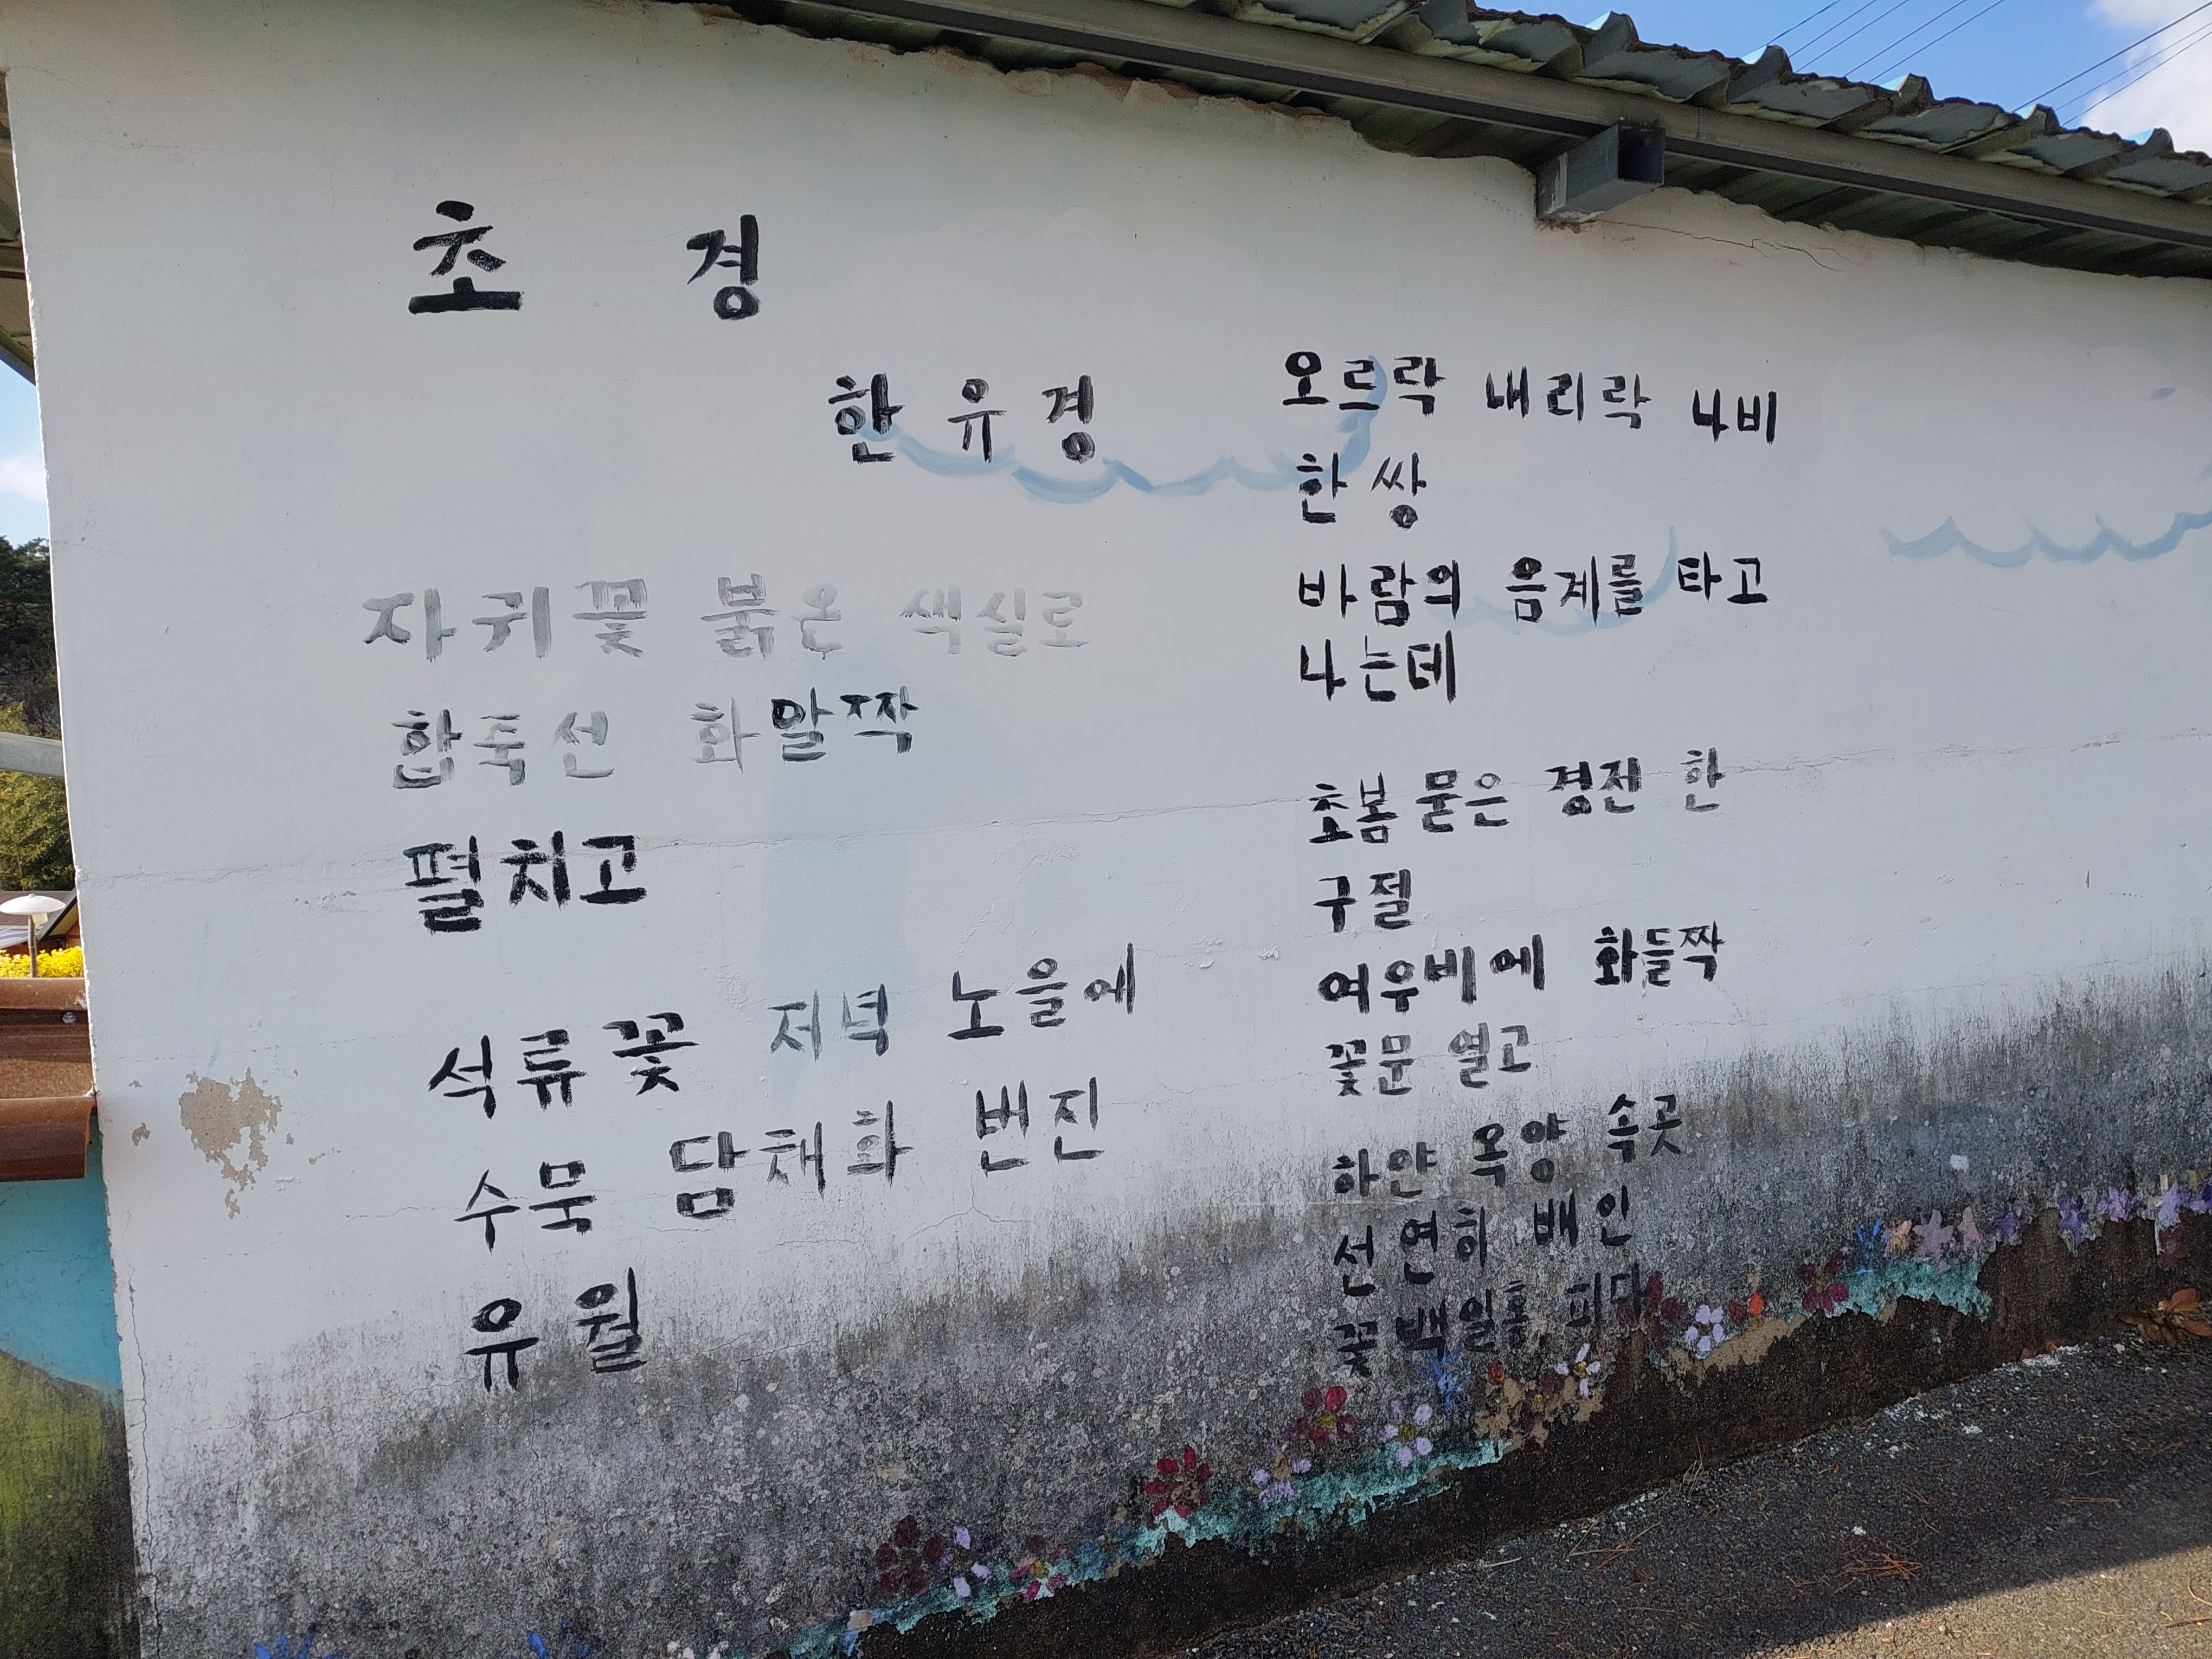 초 경
한 유 경
자귀꽃 붉은 색실로
합죽선 화알짝
펼치고
석류꽃 저녁 노을에
수묵 담채화 번진
유월
오르락 내리락 나비
한 쌍
바람의 음계를 타고
나는데
초봄 묻은 경전 한
구절
여우비에 화들짝
꽃문 열고
하얀 옥양 속곳
선연히 배인
꽃백일홍 피다